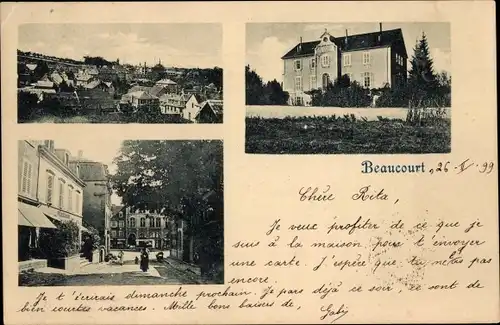 Beaucourt, 26-V-99
Chère Rita,
Je veux profiter de ce que je
suis à la maison pour t'envoyer
une carte. J'espère que tu n'etas pas
encore.
Je t'écrirais dimanche prochain. Je pars déjà ce soir, ce sont de
bien courtes vacances. Mille bons baisers de, Gaby